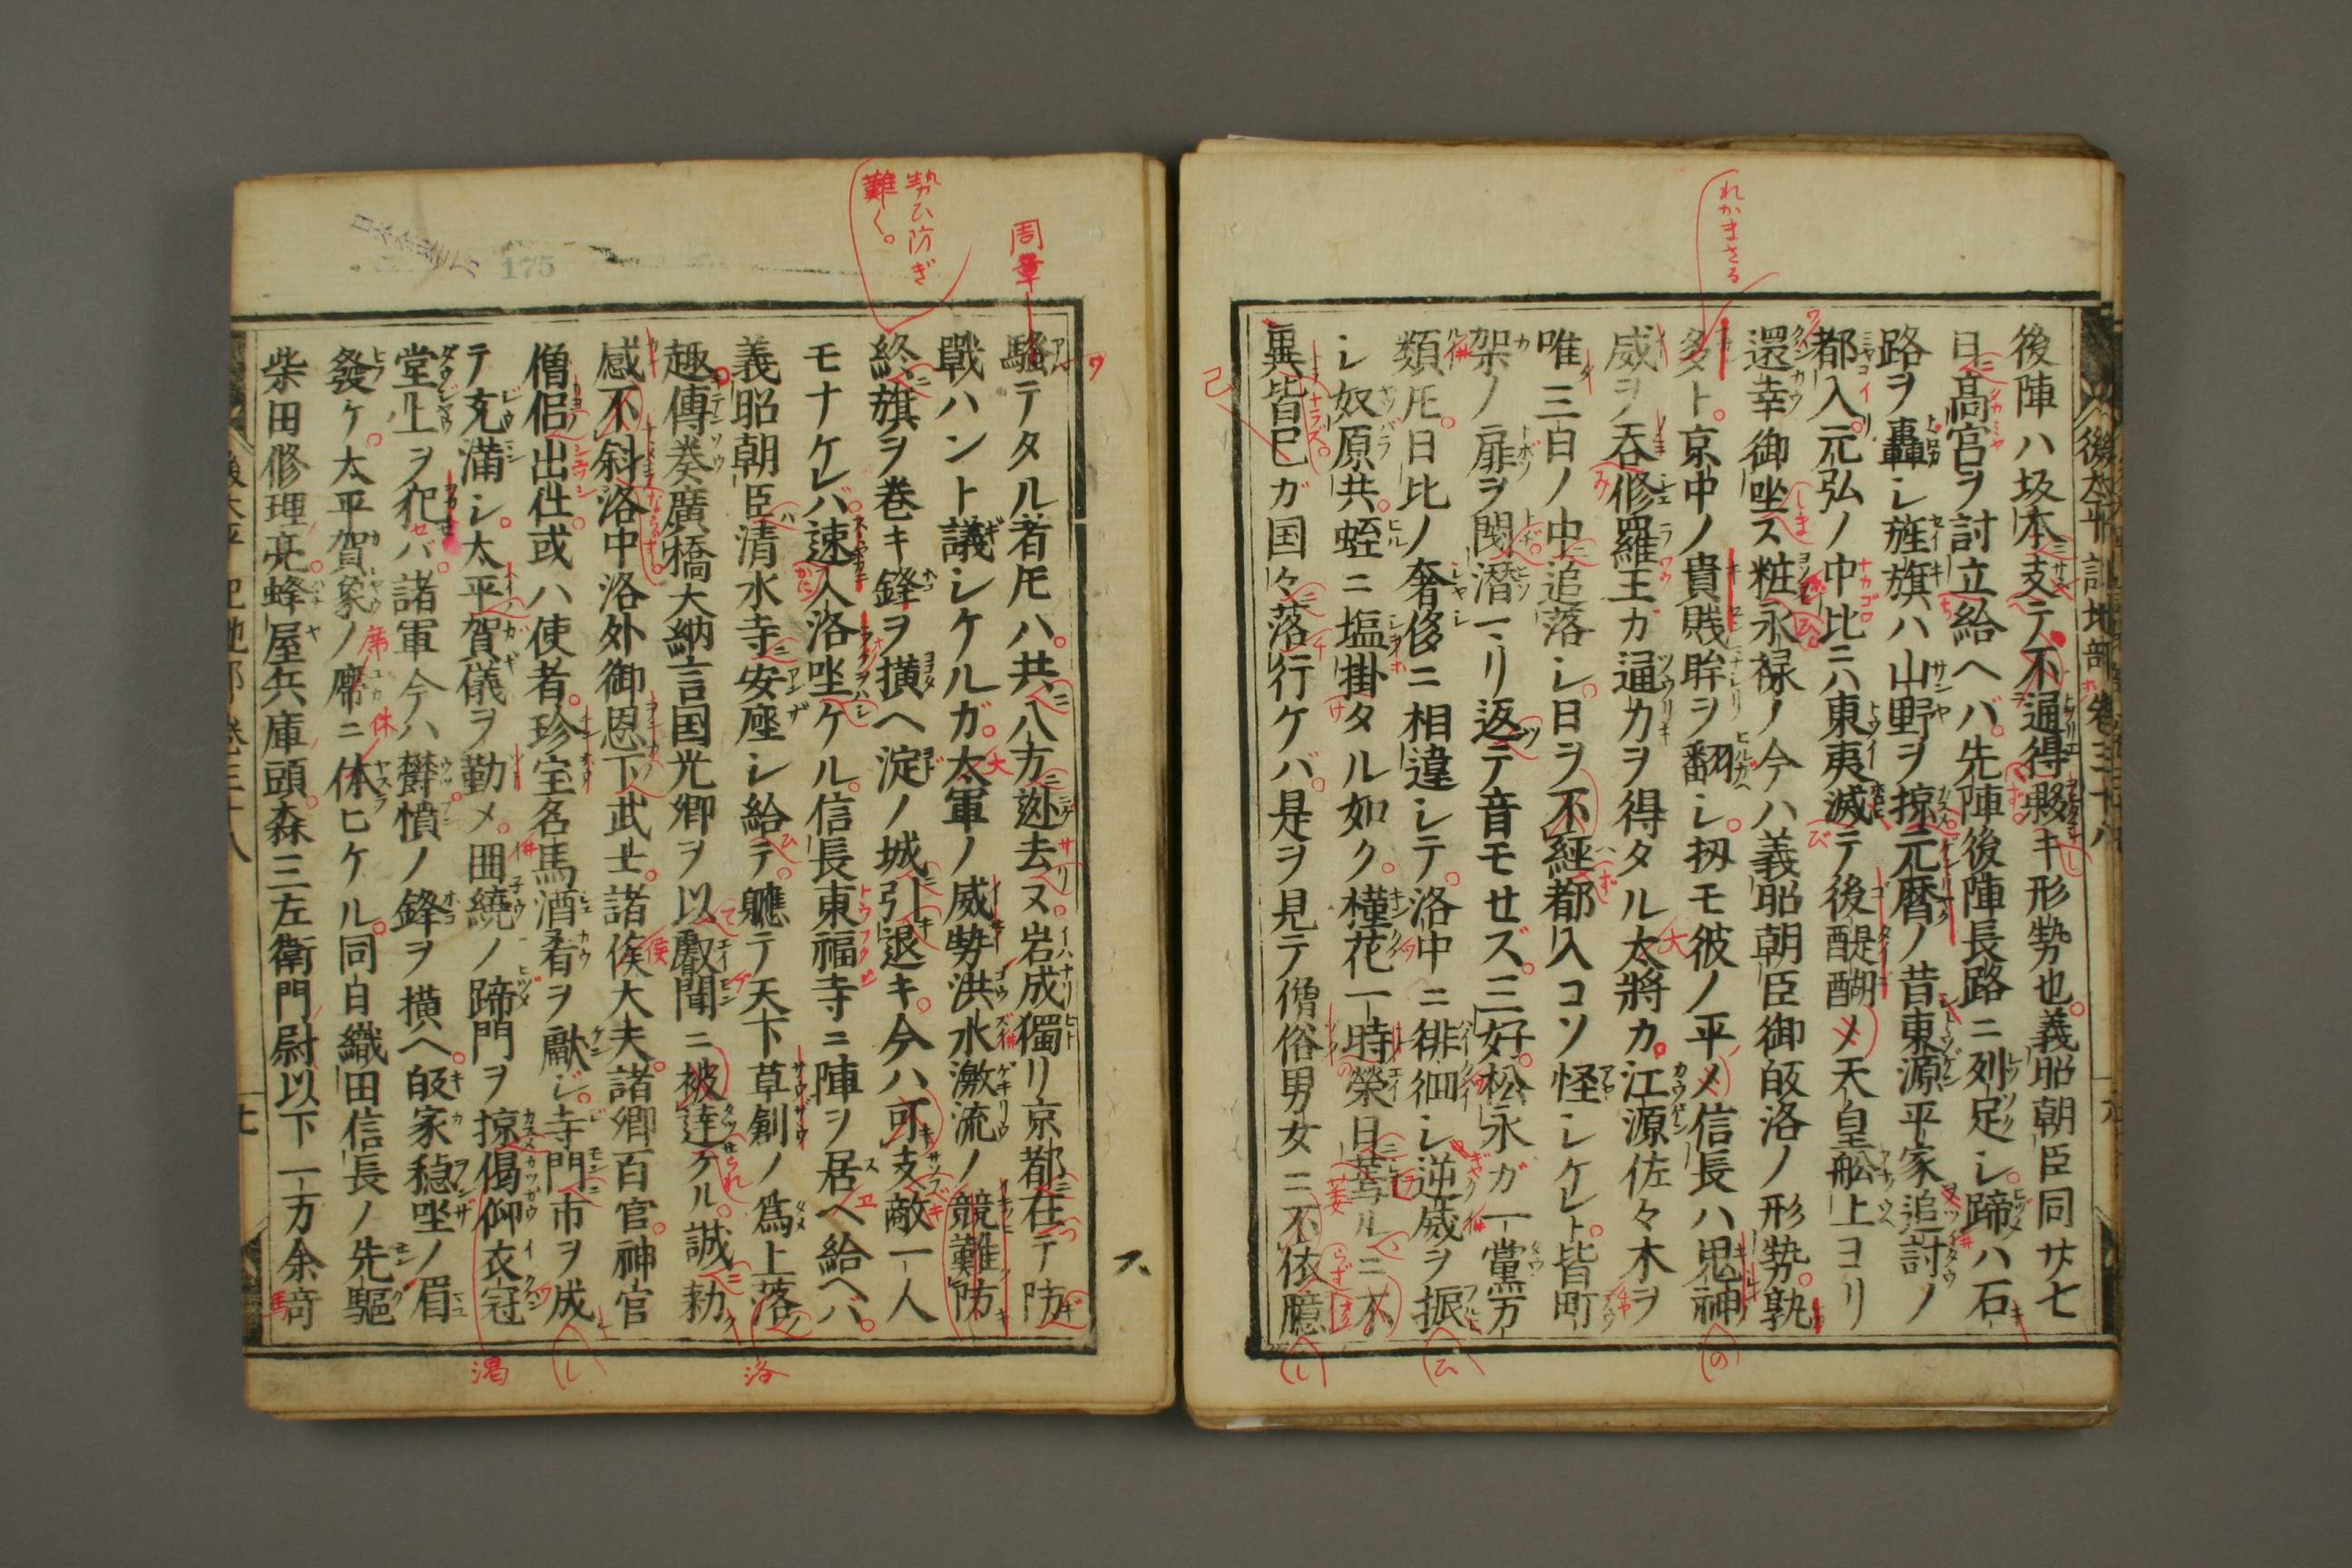 後陣ハ坂本支テ不通得躱キ形勢也。義昭朝臣同廿七
日高宮ヲ討立給ヘバ。先陣後陣長路ニ列足シ。蹄ハ石
路ヲ轟シ旌旗ハ山野ヲ掠元暦ノ昔東源平家追討ノ
都入。元弘ノ中比ニハ東夷滅テ後醍醐メ天皇舩上ヨリ
還幸御坐ス粧永禄ノ今ハ義昭朝臣御皈洛ノ形勢。孰
多ト。京中ノ貴賎眸ヲ翻シ。扨モ彼ノ平メ信長ハ鬼神
威ヲ呑修羅王ガ通力ヲ得タル太將カ。江源佐々木ヲ
唯三日ノ中追落シ。日ヲ不經都入コソ怪シケレト。皆町
架ノ扉ヲ閉潜一リ返テ音モセズ。三好。松永ガ一黨方
類𪜈。日比ノ奢侈ニ相違シテ。洛中ニ徘徊シ逆威ヲ振
シ奴原共。蛭ニ塩掛タル如ク。槿花一時榮日萎ルニ不
異皆已ガ国々落行ケバ。是ヲ見テ僧俗男女ニ不依臆
騒テタル者𪜈ハ。共八方迯去ヌ岩成獨リ京都在テ防
戰ハント議シケルガ。太軍ノ威勢洪水激流ノ競難防
終旗ヲ巻キ鋒ヲ撗ヘ淀ノ城引退キ。今ハ可支敵一人
モナケレバ。速入洛坐ケル。信長東福寺ニ陣ヲ居ヘ給ヘバ。
義昭朝臣清水寺安座シ給テ。軈テ天下草創ノ爲上落
趣傳奏廣橋大納言国光卿ヲ以叡聞ニ被達ケル。誠勅
感不斜洛中洛外御恩下武士。諸侯大夫。諸卿百官。神官
僧侶出仕或ハ使者。珍宝名馬酒肴ヲ獻ジ。寺門市ヲ成
テ充満シ。太平賀儀ヲ勤メ。囲繞ノ蹄門ヲ掠偈仰衣冠
堂上ヲ犯バ。諸軍今ハ欝憤ノ鋒ヲ撗ヘ。皈家穏坐ノ眉
發ケ。太平賀象ノ席ニ休ヒケル。同日織田信長ノ先驅
柴田修理亮。蜂屋兵庫頭。森三左衛門尉以下一万余竒
後太平記地部 巻三十八
周章
勢ひ防ぎ
難く。
れかまさる
175
己
洛
渇